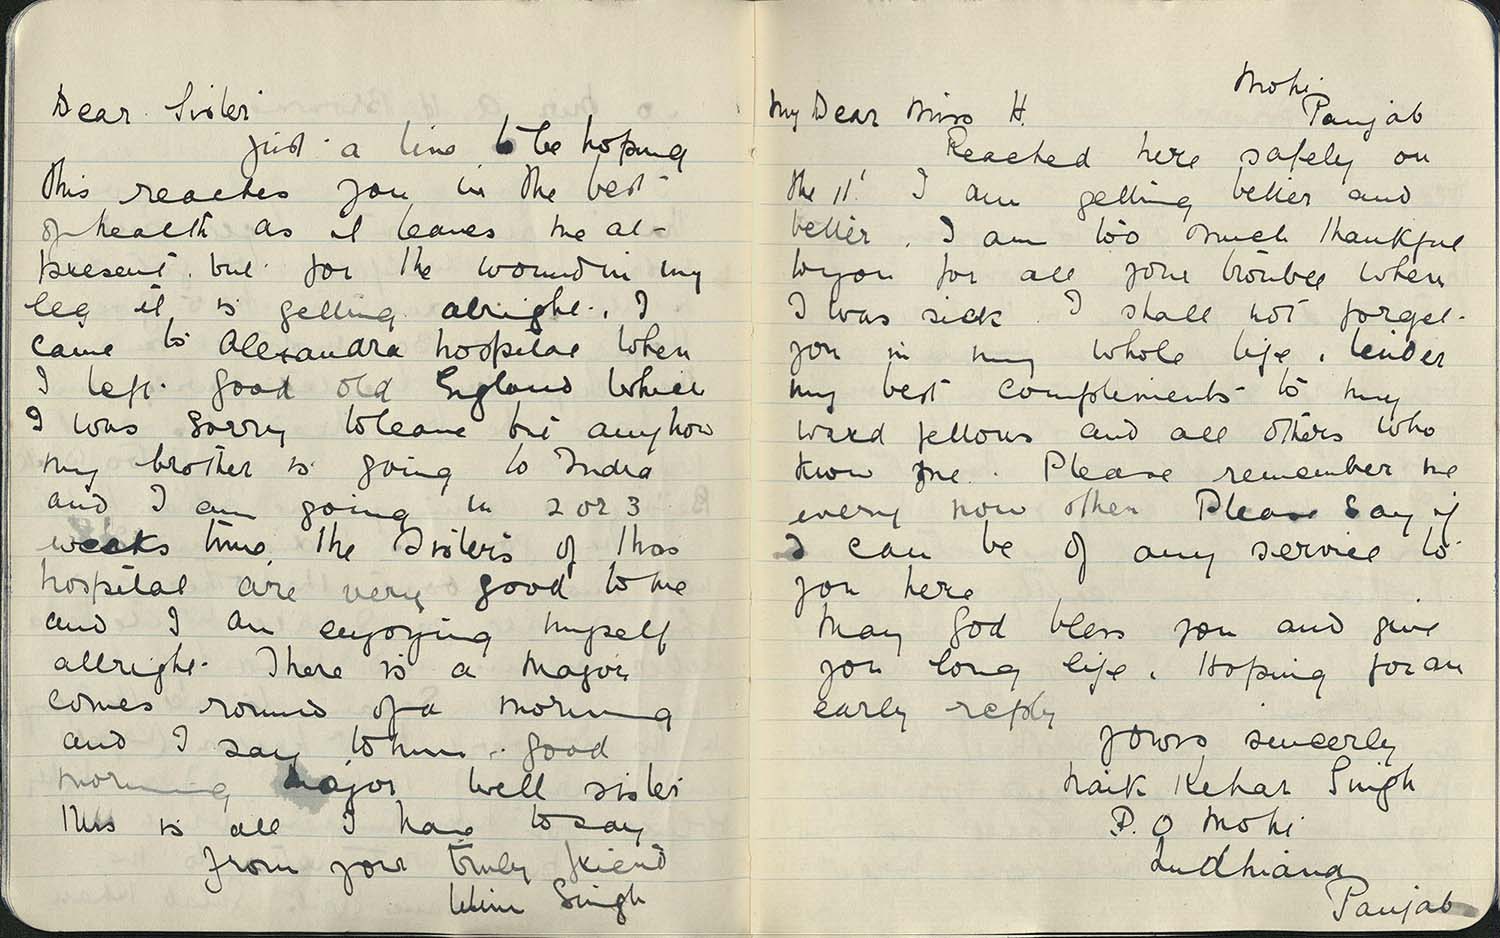 Dear Sister
just a line to be hoping
this reaches you in the best
of health as it leaves me at
present. but for the wound in my
leg it is getting alright. I
came to Alexandra hospital when
I left good old England which
I was sorry to leave but anyhow
my brother is going to India
and I am going in 2 or 3
weeks time. The Sisters of this
hospital are very good to me
and I am enjoying myself
allright. There is a Major
comes round of a morning
and I say to him. good
morning Major well sister
this is all I have to say
from your truly friend
Singh
Mohi
Panjab
My Dear Miss H.
Reached here safely on
the 11! I am getting better and
better. I am too much thankful
to you for all your trouble when
I was sick. I shall not forget
you in my whole life. tender
my best compliments to my
ward fellows and all others who
know me. Please remember me
every now other Please Say if
I can be of any service to
you here
May God bless you and give
you long life. Hoping for an
early reply
yours sincerly
Naik Kehar Singh
P.O Mohi
Ludhiana
Panjab